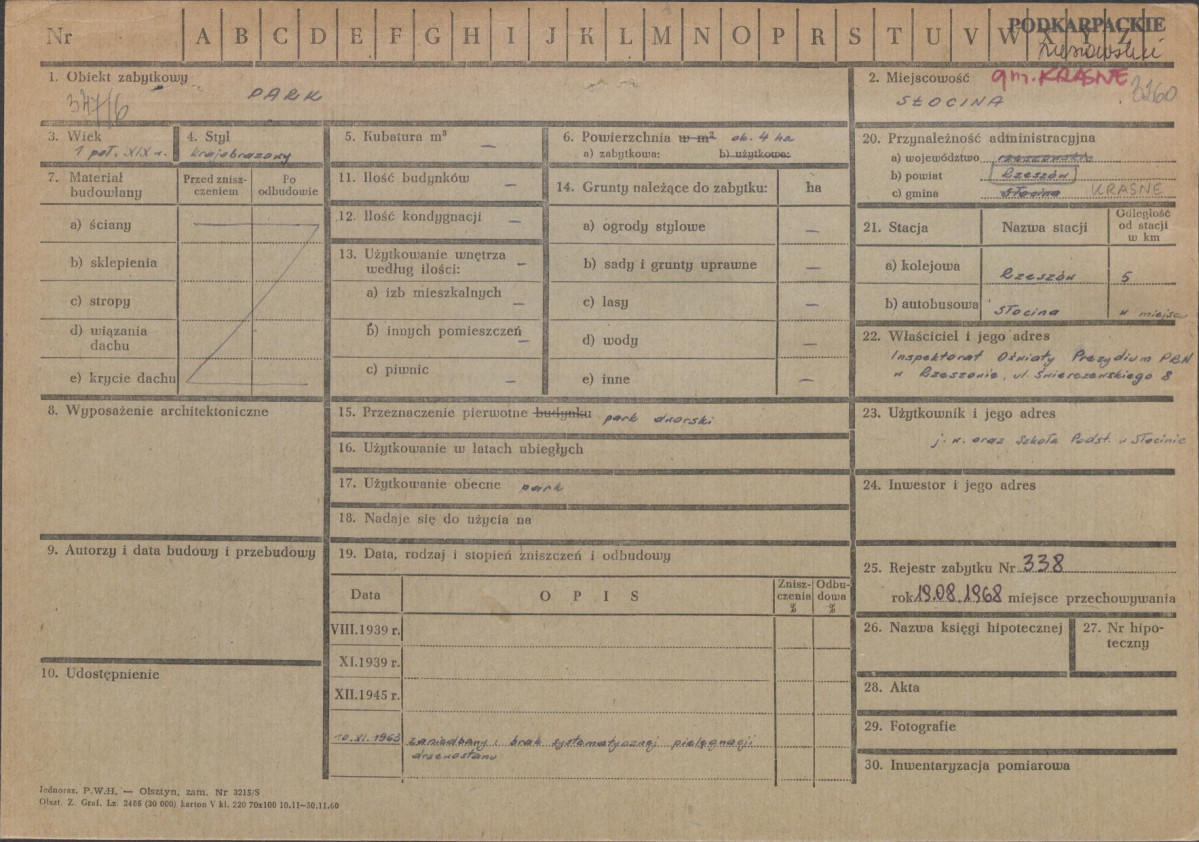 Nr A B C D E F G H I J K L M N O P R S T U V W X Y Z
PODKARPACKIE
1. Obiekt zabytkowy
PARK
2. Miejscowość gm. KRASNE
SŁOCINA 3260
3. Wiek
1 poł. XIX w.
4. Styl
krajobrazowy
5. Kubatura m³ —
6. Powierzchnia w m² ok. 4 ha
a) zabytkowa: b) użytkowa:
7. Materiał budowlany
Przed zniszczeniem
Po odbudowie
a) ściany
b) sklepienia
c) stropy
d) wiązania dachu
e) krycie dachu
8. Wyposażenie architektoniczne
9. Autorzy i data budowy i przebudowy
10. Udostępnienie
11. Ilość budynków —
12. Ilość kondygnacji —
13. Użytkowanie wnętrza według ilości: —
a) izb mieszkalnych —
b) innych pomieszczeń —
c) piwnic —
14. Grunty należące do zabytku: ha
a) ogrody stylowe —
b) sady i grunty uprawne —
c) lasy —
d) wody —
e) inne —
15. Przeznaczenie pierwotne budynku park dworski
16. Użytkowanie w latach ubiegłych
17. Użytkowanie obecne park
18. Nadaje się do użycia na
19. Data, rodzaj i stopień zniszczeń i odbudowy
Data
OPIS
Zniszczenia %
Odbudowa %
VIII.1939 r.
XI.1939 r.
XII.1945 r.
10.XI.1963 zaniedbany, brak systematycznej pielęgnacji
drzewostanu
20. Przynależność administracyjna
a) województwo rzeszowskie
b) powiat Rzeszów
c) gmina Słocina KRASNE
21. Stacja
Nazwa stacji
Odległość od stacji w km
a) kolejowa Rzeszów 5
b) autobusowa Słocina w miejscu
22. Właściciel i jego adres
Inspektorat Oświaty Prezydium PRN
w Rzeszowie, ul. Świerczewskiego 8
23. Użytkownik i jego adres
j. w. oraz Szkoła Podst. w Słocinie
24. Inwestor i jego adres
25. Rejestr zabytku Nr 338
rok 19.08.1968 miejsce przechowywania
26. Nazwa księgi hipotecznej
27. Nr hipoteczny
28. Akta
29. Fotografie
30. Inwentaryzacja pomiarowa
Jednoraz. P.W.H. — Olsztyn, zam. Nr 3215/S
Olszt. Z. Graf. Lz. 2466 (30 000) karton V kl. 220 70x100 10.11—30.11.60